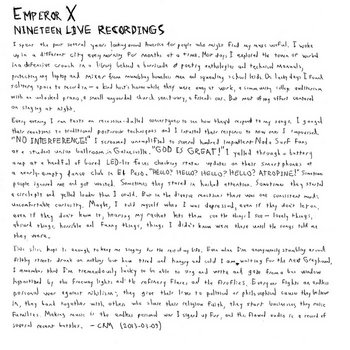 EMPEROR X
NINETEEN LIVE RECORDINGS
I spent the past several years looking around America for people who might find my music useful. I woke
up in a different city every morning for months at a time. Most days I explored the town or worked
in a defensive crouch in a library behind a barricade of poetry anthologies and technical manuals,
protecting my laptop and mixer from mumbling homeless men and squealing school kids. On lucky days I found
solitary space to record in— a kind host's home while they were away at work, a community college auditorium
with an unlocked piano, a small unguarded church sanctuary, a friend's car. But most of my efforts centered
on singing at night.
Every evening I ran tests on accession-alloyed to see how they respond to my songs. I gauged
their reactions to traditional positions techniques and I tested their response to new ones I improvised.
"NO INTERFERENCE!" I screamed unamplified to several hundred impatient Nada Surf fans
at a student union ballroom in Gainesville. "GOD IS GREAT!" I yelled through a battery
amp at a handful of bored LED-lit faces checking status updates on their smartphones at
a nearly-empty dance club in El Paso. "HELLO? HELLO? HELLO? HELLO? ATROPINE!" Sometimes
people ignored me and got wasted. Sometimes they stared in baffled attention. Sometimes they stayed
a circle and yelled louder than I could. But in the diverse reactions there was one consistent mode:
uncomfortable curiosity. Maybe, I told myself when I was depressed, even if they don't listen,
even if they don't know it, hearing my racket lets them see the things I see— lovely things,
absurd things, horrible and funny things, things I didn't know were there until the songs told me
they were.
This slim hope is enough to keep me singing for the rest of my life. Even when I'm anonymously stumbling around
filthy streets drunk on nothing but born tired and hungry and cold I am waiting for the next Greyhound,
I remember that I'm tremendously lucky to be able to sing and write and gaze from a bus window
hypnotized by the freeway lights and the refinery flares and the fireflies. Everyone fights an endless
personal war against nihilism: they give their lives to political or philosophical causes they believe
in, they band together with others who share their religious faith, they start businesses, they raise
families. Making music is the endless personal war I signed up for, and the flawed audio is a record of
several recent battles. —CRM (2013-01-09)